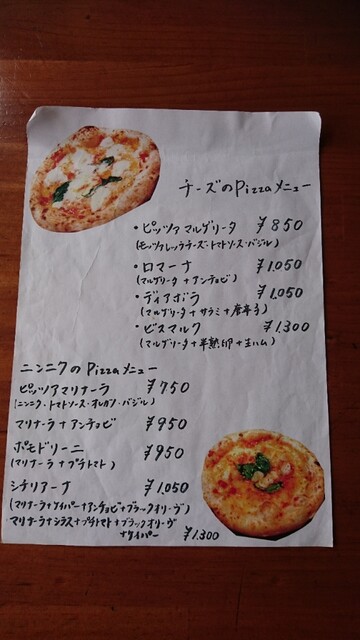 チーズのPizzaメニュー
・ピッツァ マルゲリータ ¥850
(モッツァレッラチーズ・トマトソース・バジル)
・ロマーナ ¥1.050
(マルゲリータ + アンチョビ)
・ディアボラ ¥1.050
(マルゲリータ + サラミ + 唐辛子)
・ビスマルク ¥1.300
(マルゲリータ + 半熟卵 + 生ハム)
ニンニクの Pizzaメニュー
ピッツァマリナーラ ¥750
(ニンニク・トマトソース・オレガノ・バジル)
マリナーラ + アンチョビ ¥950
ポモドリーニ ¥950
(マリナーラ + プチトマト)
シチリアーナ ¥1.050
(マリナーラ + ケイパー + アンチョビ + ブラックオリーヴ)
マリナーラ + シラス + プチトマト + ブラックオリーヴ
+ケイパー ¥1.300